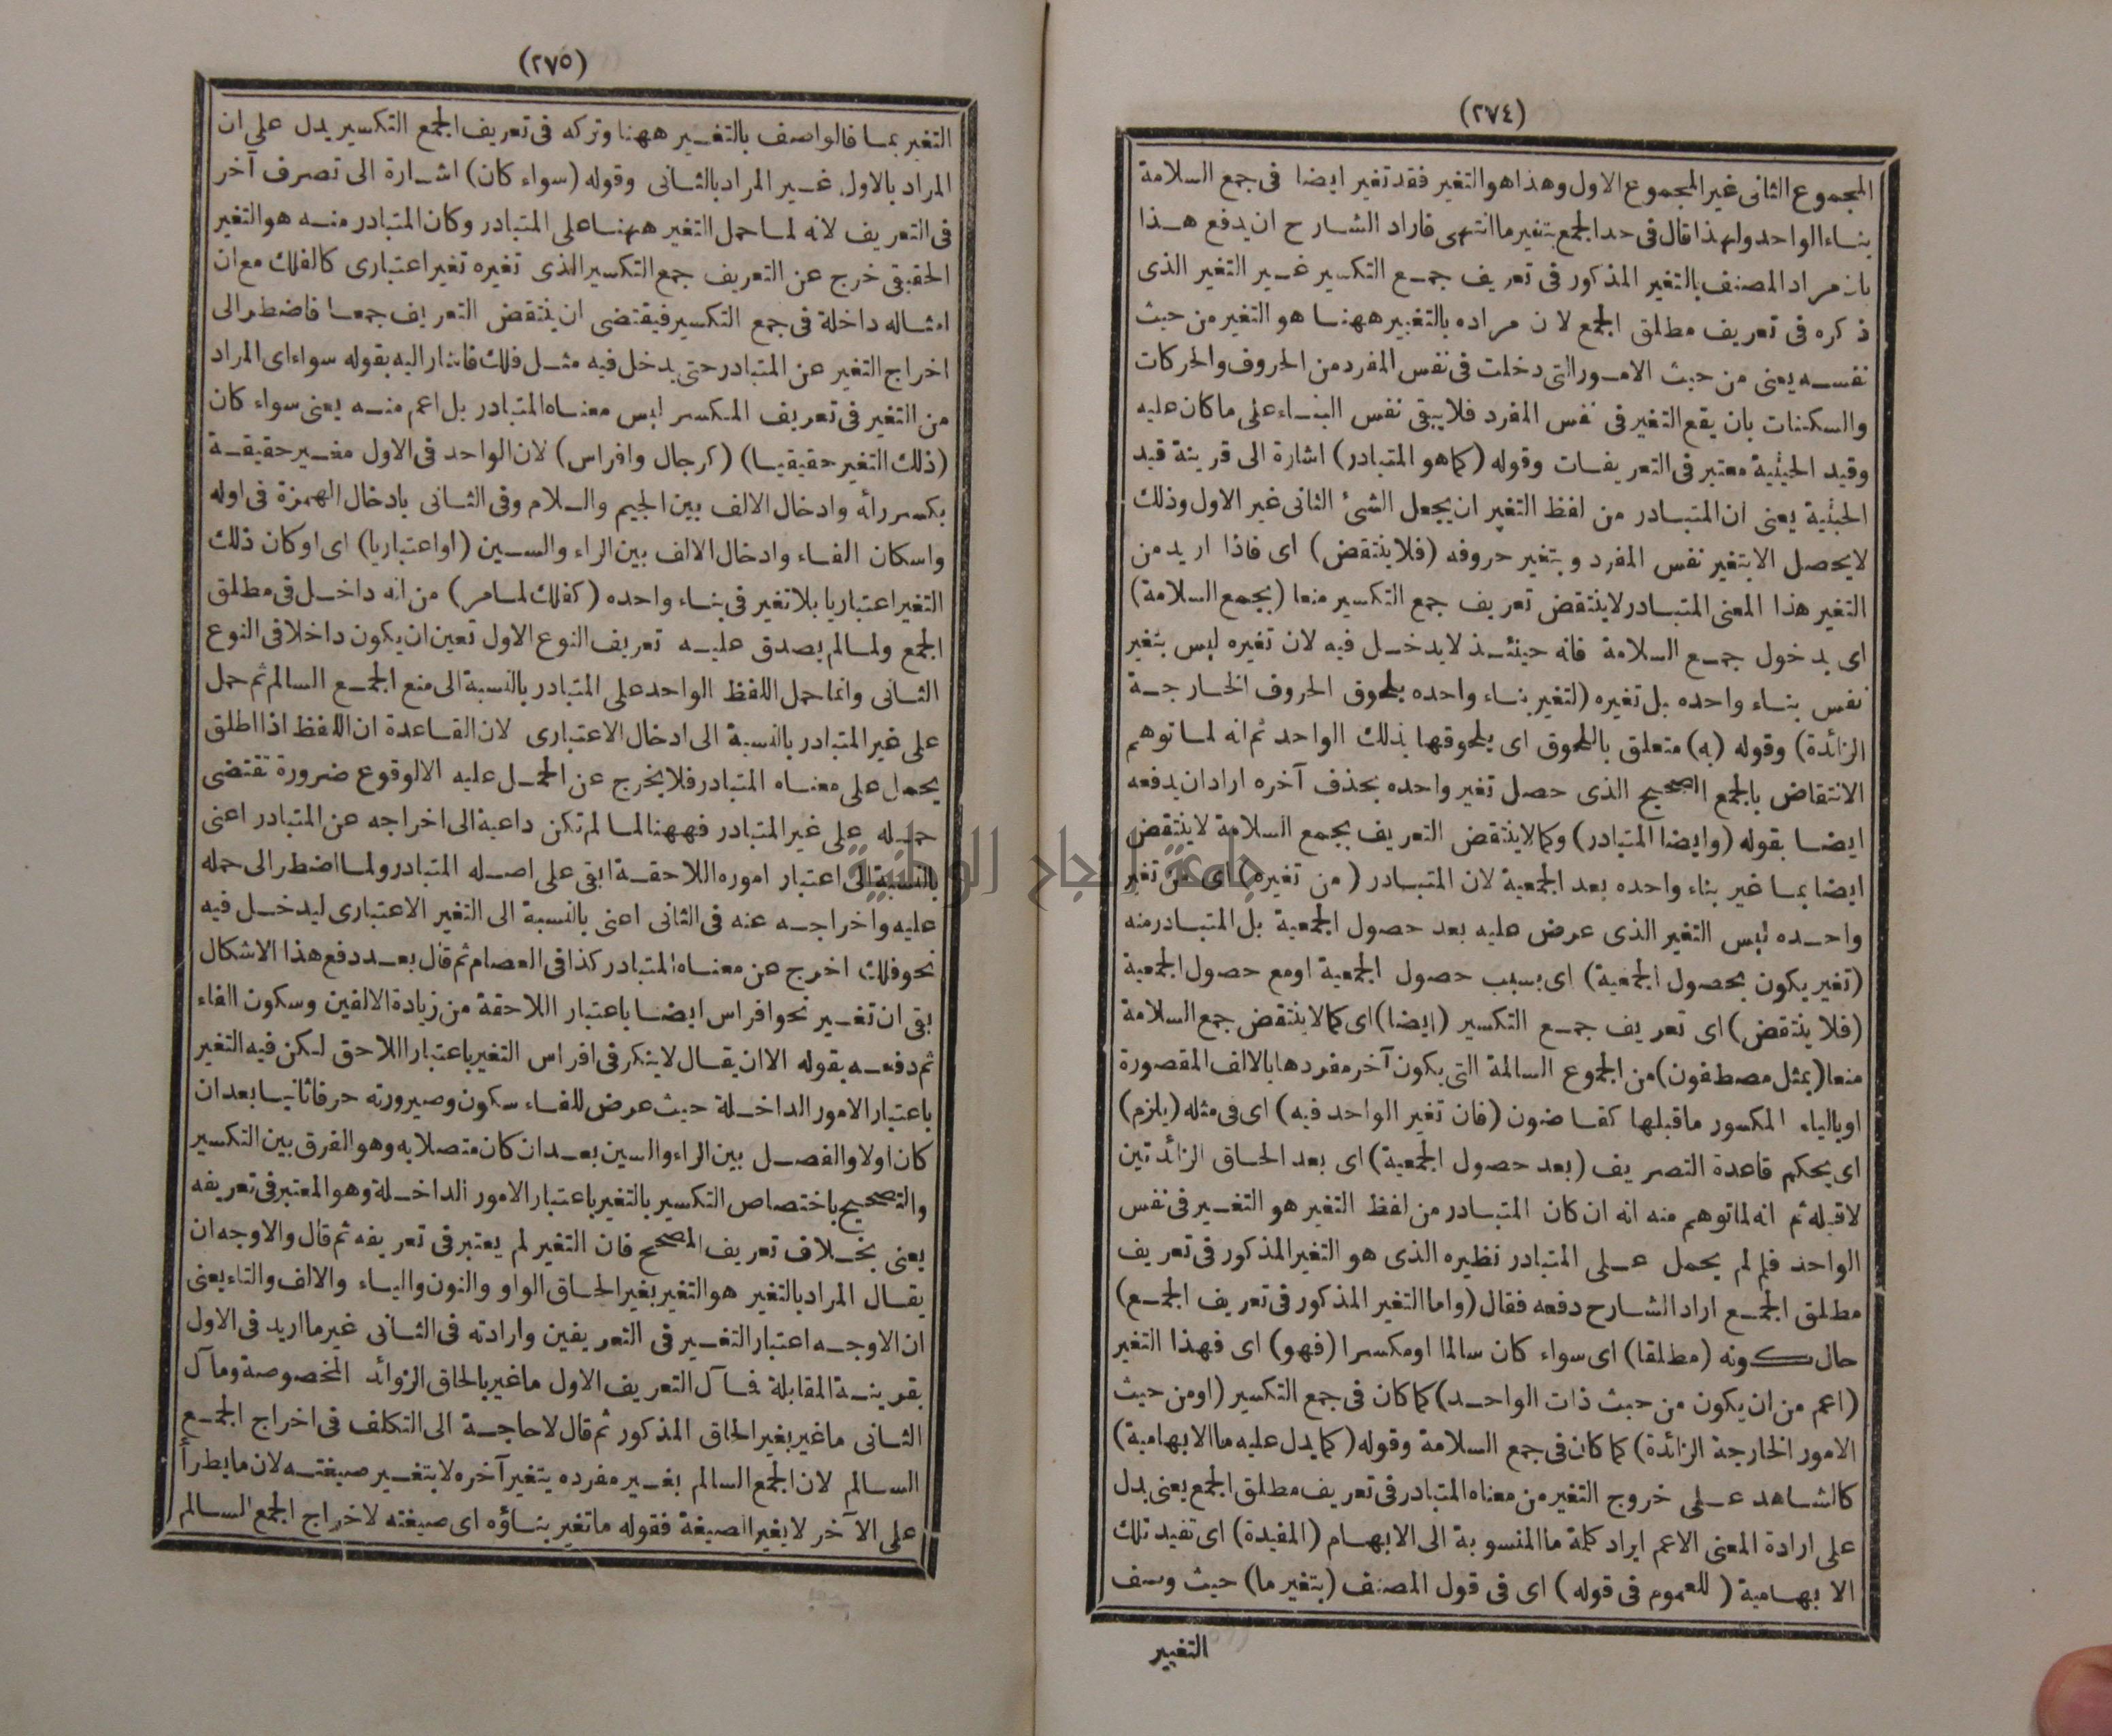 (٢٧٤)
المجموع الثانى غير المجموع الاول وهذا هو التغير فقد تغير ايضا فى جمع السلامة
بناء الواحد ولهذا قال فى حد الجمع بتغير ما انتهى فاراد الشارح ان يدفع هذا
بان مراد المصنف بالتغير المذكور فى تعريف جمع التكسير غير التغير الذى
ذكره فى تعريف مطلق الجمع لان مراده بالتغيير ههنا هو التغير من حيث
نفسه يعنى من حيث الامور التى دخلت فى نفس المفرد من الحروف والحركات
والسكنات بان يقع التغير فى نفس المفرد فلا يبقى نفس البناء على ما كان عليه
وقيد الحيثية معتبر فى التعريفات وقوله (كما هو المتبادر) اشارة الى قرينة قيد
الحيثية يعنى ان المتبادر من لفظ التغير ان يجعل الشئ الثانى غير الاول وذلك
لا يحصل الا بتغير نفس المفرد وبتغير حروفه (فلا ينتقض) اى فاذا اريد من
التغير هذا المعنى المتبادر لا ينتقض تعريف جمع التكسير منعا (بجمع السلامة)
اى بدخول جمع السلامة فانه حينئذ لا يدخل فيه لان تغيره ليس بتغير
نفس بناء واحده بل تغيره (لتغير بناء واحده بلحوق الحروف الخارجة
الزائدة) وقوله (به) متعلق باللحوق اى بلحوقها بذلك الواحد ثم انه لما توهم
الانتقاض بالجمع الصحيح الذى حصل تغير واحده بحذف آخره اراد ان يدفعه
ايضا بقوله (وايضا المتبادر) وكما لا ينتقض التعريف بجمع السلامة لا ينتقض
ايضا بما غير بناء واحده بعد الجمعية لان المتبادر (من تغيره) اى من تغير
واحده ليس التغير الذى عرض عليه بعد حصول الجمعية بل المتبادر منه
(تغير يكون بحصول الجمعية) اى بسبب حصول الجمعية او مع حصول الجمعية
(فلا ينتقض) اى تعريف جمع التكسير (ايضا) اى كما لا ينتقض جمع السلامة
منعا (بمثل مصطفون) من الجموع السالمة التى يكون آخر مفردها بالالف المقصورة
او بالياء المكسور ما قبلها كقاضون (فان تغير الواحد فيه) اى فى مثله (يلزم)
اى بحكم قاعدة التصريف (بعد حصول الجمعية) اى بعد الحاق الزائدتين
لا قبله ثم انه لما توهم منه انه ان كان المتبادر من لفظ التغير هو التغير فى نفس
الواحد فلم لم يحمل على المتبادر نظيره الذى هو التغير المذكور فى تعريف
مطلق الجمع اراد الشارح دفعه فقال (واما التغير المذكور فى تعريف الجمع)
حال كونه (مطلقا) اى سواء كان سالما او مكسرا (فهو) اى فهذا التغير
(اعم من ان يكون من حيث ذات الواحد) كما كان فى جمع التكسير (او من حيث
الامور الخارجة الزائدة) كما كان فى جمع السلامة وقوله (كما يدل عليه ما الابهامية)
كالشاهد على خروج التغير من معناه المتبادر فى تعريف مطلق الجمع يعنى يدل
على ارادة المعنى الاعم ايراد كلمة ما المنسوبة الى الابهام (المفيدة) اى تفيد تلك
الابهامية (للعموم فى قوله) اى فى قول المصنف (بتغير ما) حيث وصف
التغيير
(٢٧٥)
التغير بما فالواصف بالتغيير ههنا وتركه فى تعريف الجمع التكسير يدل على ان
المراد بالاول غير المراد بالثانى وقوله (سواء كان) اشارة الى تصرف آخر
فى التعريف لانه لما حمل التغير ههنا على المتبادر وكان المتبادر منه هو التغير
الحقيقى خرج عن التعريف جمع التكسير الذى تغيره تغير اعتبارى كالفلك مع ان
امثاله داخلة فى جمع التكسير فيقتضى ان ينتقض التعريف جمعا فاضطر الى
اخراج التغير عن المتبادر حتى يدخل فيه مثل فلك فاشار اليه بقوله سواء اى المراد
من التغير فى تعريف المكسر ليس معناه المتبادر بل اعم منه يعنى سواء كان
(ذلك التغير حقيقيا) (كرجال وافراس) لان الواحد فى الاول مغير حقيقة
بكسر رأه وادخال الالف بين الجيم واللام وفى الثانى بادخال الهمزة فى اوله
واسكان الفاء وادخال الالف بين الراء والسين (او اعتباريا) اى او كان ذلك
التغير اعتباريا بلا تغير فى بناء واحده (كفلك لما مر) من انه داخل فى مطلق
الجمع ولما لم يصدق عليه تعريف النوع الاول تعين ان يكون داخلا فى النوع
الثانى وانما حمل اللفظ الواحد على المتبادر بالنسبة الى منع الجمع السالم ثم حمل
على غير المتبادر بالنسبة الى ادخال الاعتبارى لان القاعدة ان اللفظ اذا اطلق
يحمل على معناه المتبادر فلا يخرج عن الحمل عليه الا لوقوع ضرورة تقتضى
حمله على غير المتبادر فههنا لما لم تكن داعية الى اخراجه عن المتبادر اعنى
بالنسبة الى اعتبار اموره اللاحقة ابقى على اصله المتبادر ولما اضطر الى حمله
عليه واخراجه عنه فى الثانى اعنى بالنسبة الى التغير الاعتبارى ليدخل فيه
نحو فلك اخرج عن معناه المتبادر كذا فى العصام ثم قال بعد دفع هذا الاشكال
بقى ان تغيير نحو افراس ايضا باعتبار اللاحقة من زيادة الالفين وسكون الفاء
ثم دفعه بقوله الا ان يقال لا ينكر فى افراس التغير باعتبار اللاحق لكن فيه التغير
باعتبار الامور الداخلة حيث عرض للفاء سكون وصيرورته حرفا ثانيا بعد ان
كان اولا والفصل بين الراء والسين بعد ان كان متصلا به وهو الفرق بين التكسير
والتصحيح باختصاص التكسير بالتغير باعتبار الامور الداخلة وهو المعتبر فى تعريفه
يعنى بخلاف تعريف المصحح فان التغير لم يعتبر فى تعريفه ثم قال والاوجه ان
يقال المراد بالتغير هو التغير بغير الحاق الواو والنون والياء والالف والتاء يعنى
ان الاوجه اعتبار التغيير فى التعريفين وارادته فى الثانى غير ما اريد فى الاول
بقرينة المقابلة فمآل التعريف الاول ما غير بالحاق الزوائد المخصوصة ومآل
الثانى ما غير بغير الحاق المذكور ثم قال لا حاجة الى التكلف فى اخراج الجمع
السالم لان الجمع السالم بغيير مفرده بتغير آخره لا بتغيير صيغته لان ما يطرأ
على الآخر لا يغير الصيغة فقوله ما تغير بناؤه اى صيغته لاخراج الجمع السالم
جامعة النجاح الوطنية